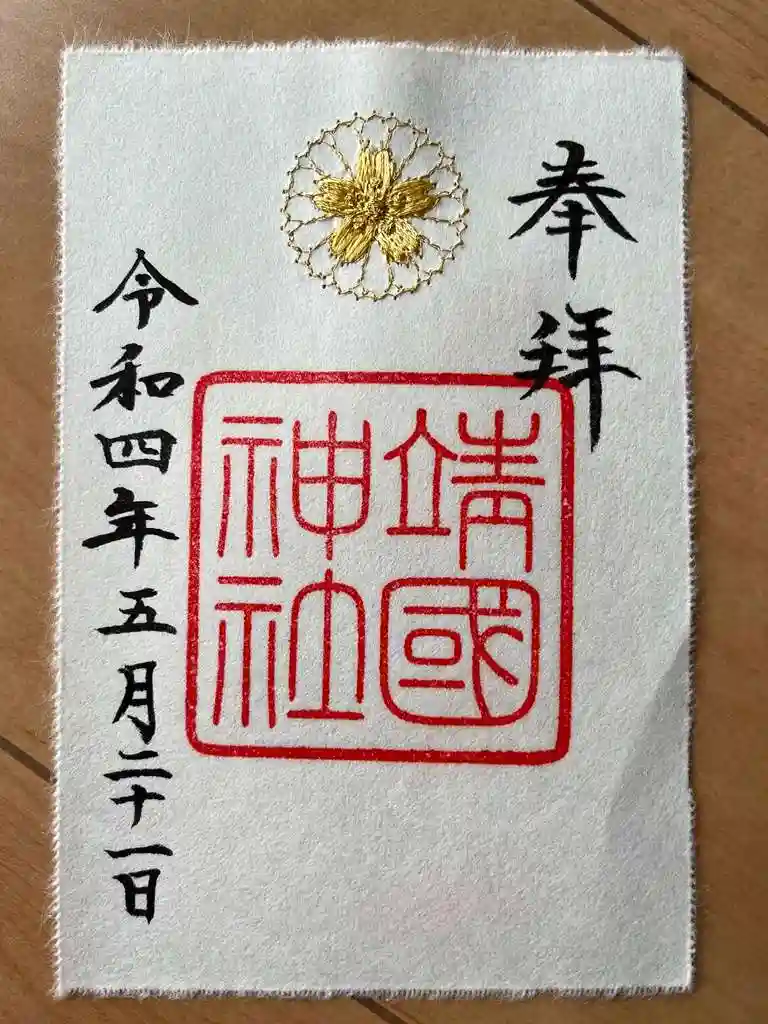 奉拜
靖國
神社
令和四年五月二十一日